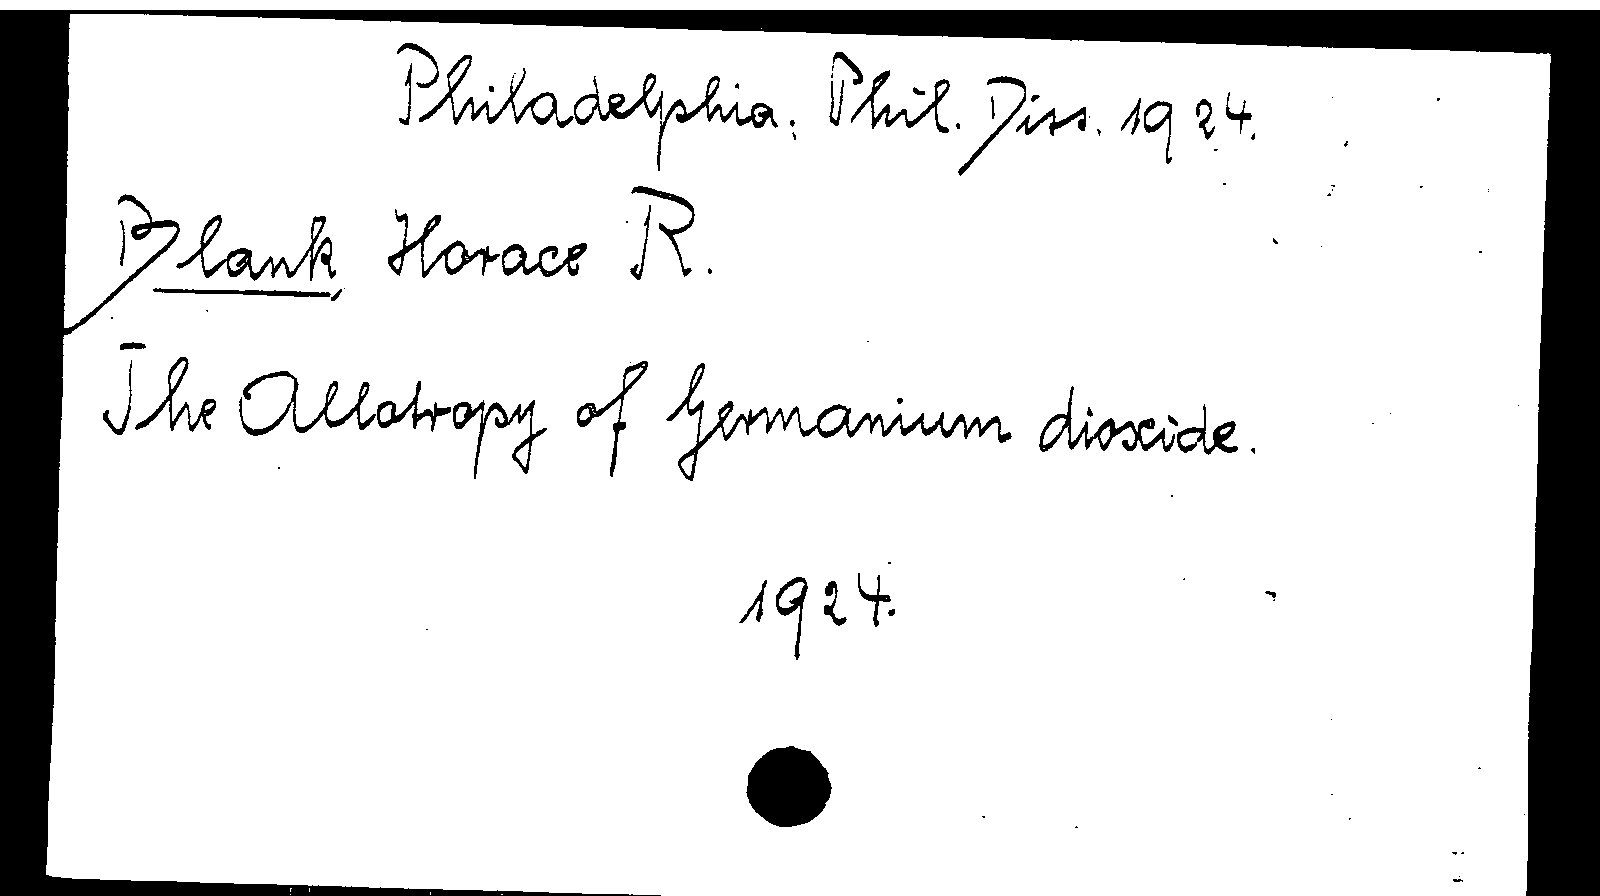 Philadelphia, Phil. Diss. 1924.
Blank, Horace R.
The Allotropy of Germanium dioxide.
1924.